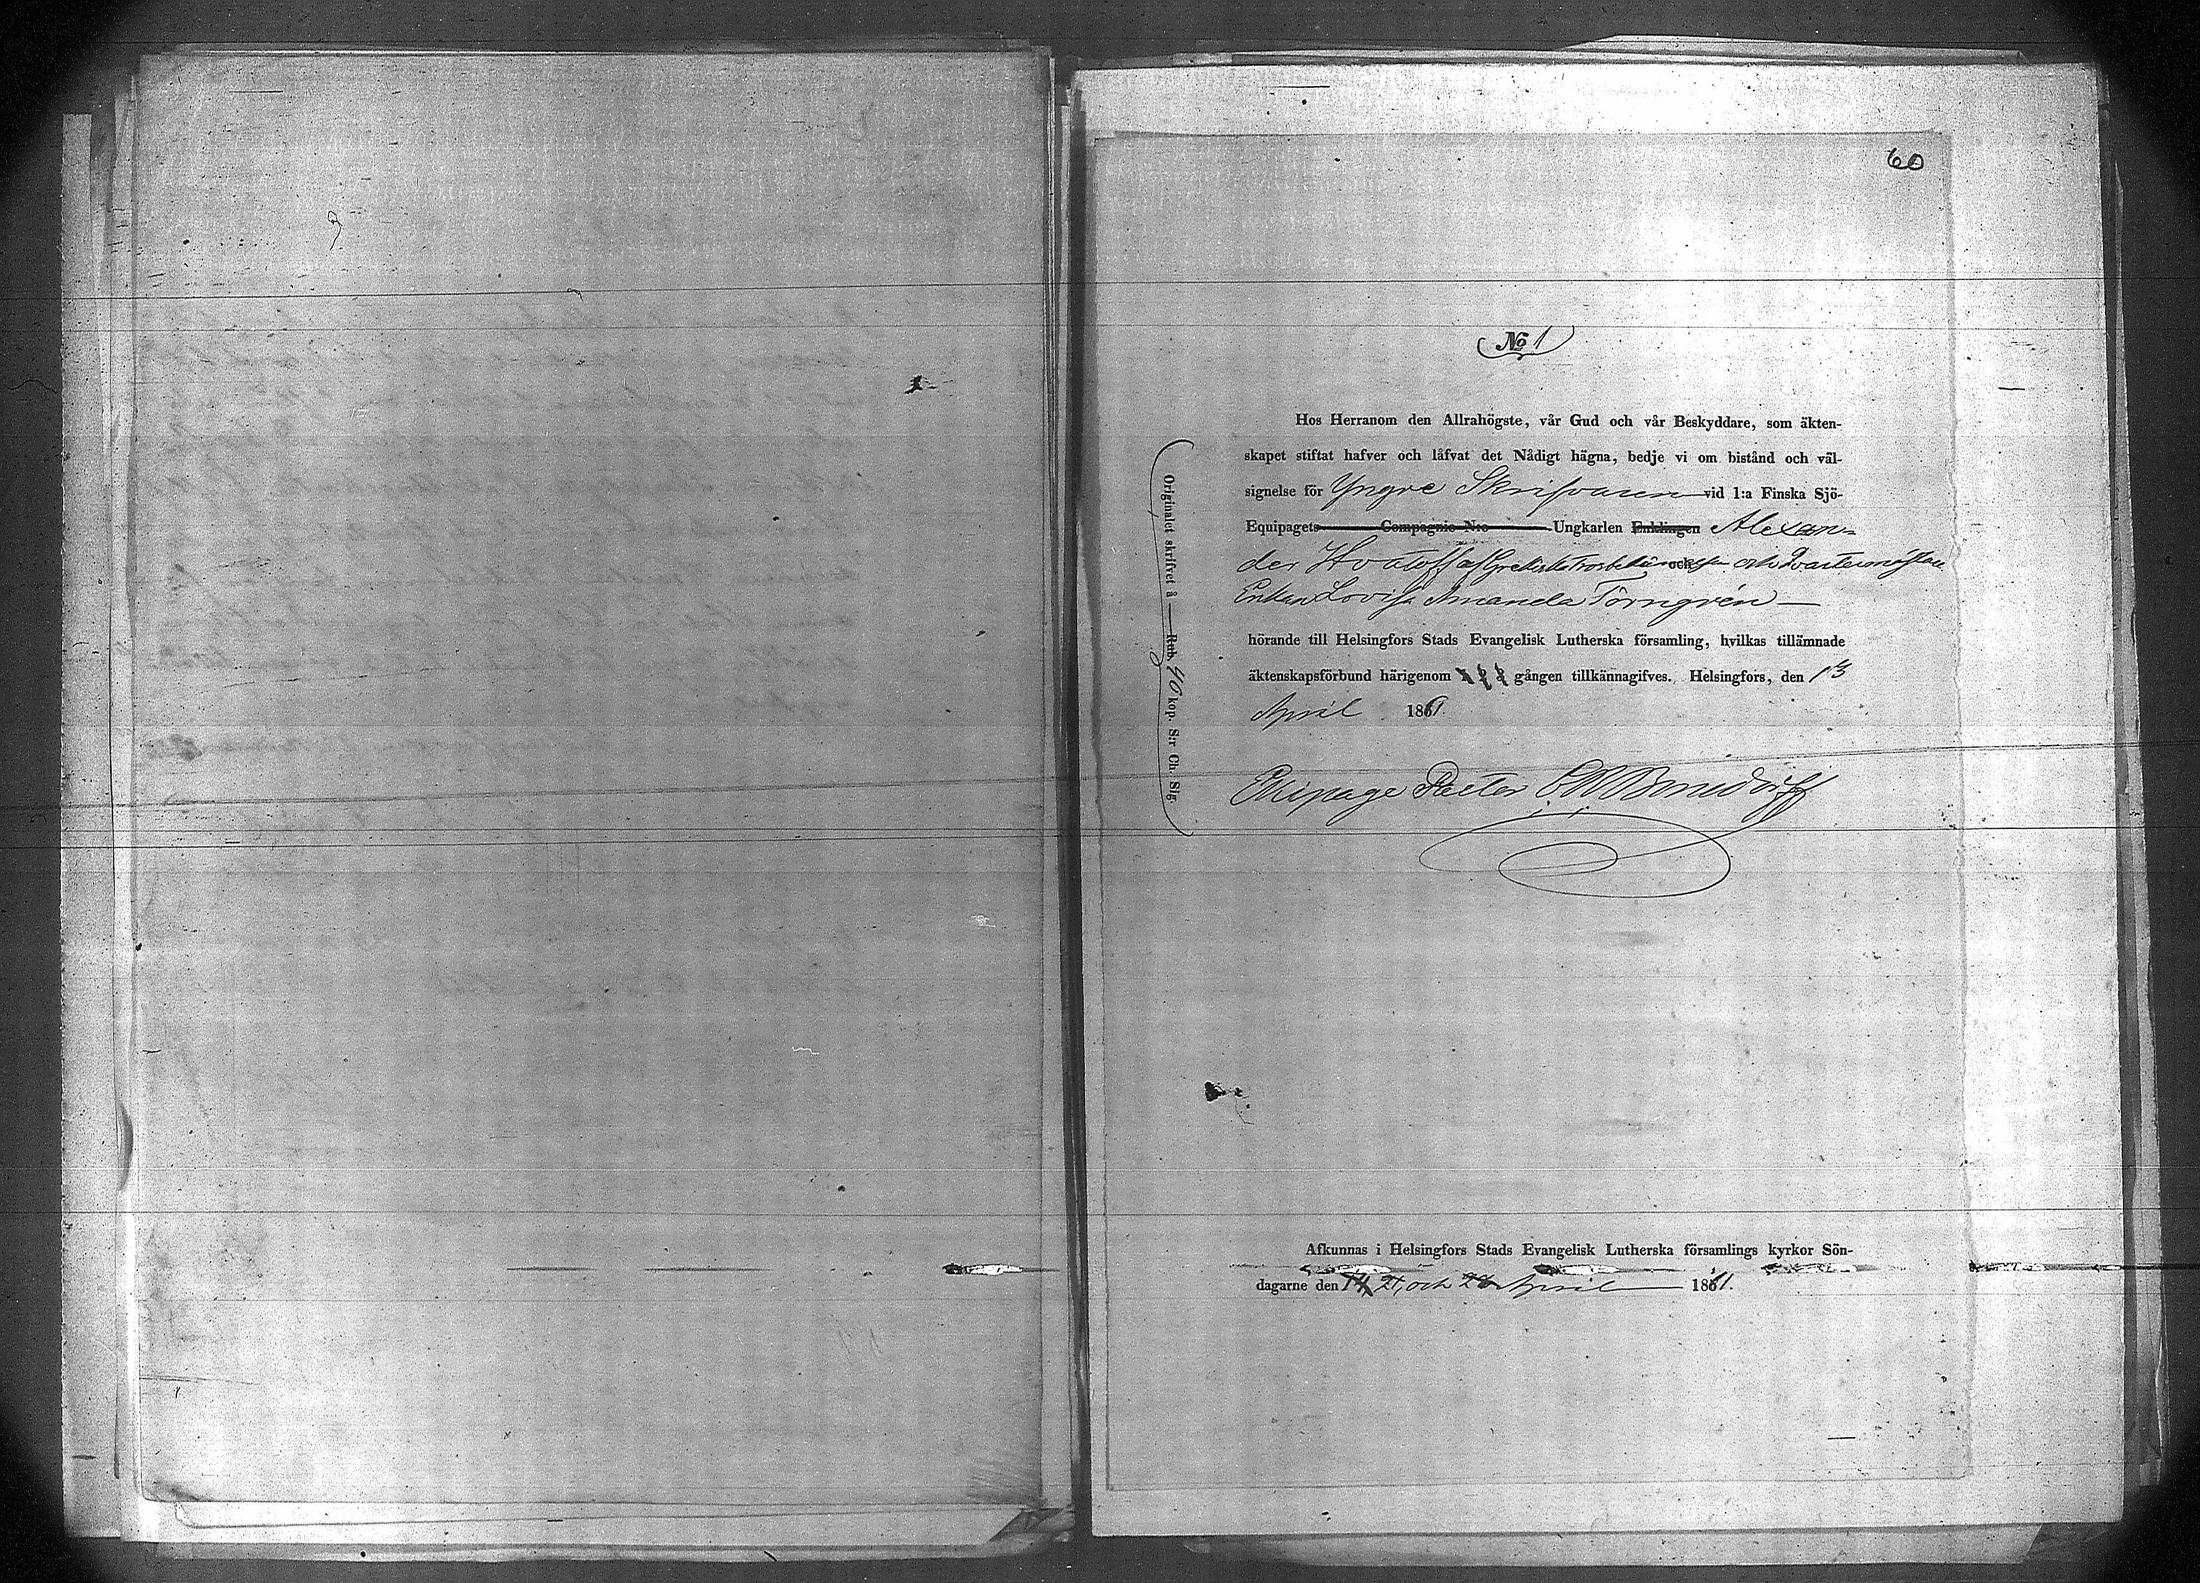 60
No 1
Hos Herranom den Allrahögste, vår Gud och vår Beskyddare, som äkten-
skapet stiftat hafver och låfvat det Nådigt hägna, bedje vi om bistånd och väl-
signelse för Yngre Skrifvaren vid 1:a Finska Sjö-
Equipagets Compagnie N:o Ungkarlen Enklingen Alexan-
der af Grekiska och
Enkan Lovisa Amanda Törngrén
hörande till Helsingfors Stads Evangelisk Lutherska församling, hvilkas tillämnade
äktenskapsförbund härigenom gången tillkännagifves. Helsingfors, den 13
April 1861.
Ekipage Pastor Bonsdorff
Originalet skrifvet å Rub. 40 kop. S:r Ch. Slg.
Afkunnas i Helsingfors Stads Evangelisk Lutherska församlings kyrkor Sön-
dagarne den 14, 21, och 28 April 1861.